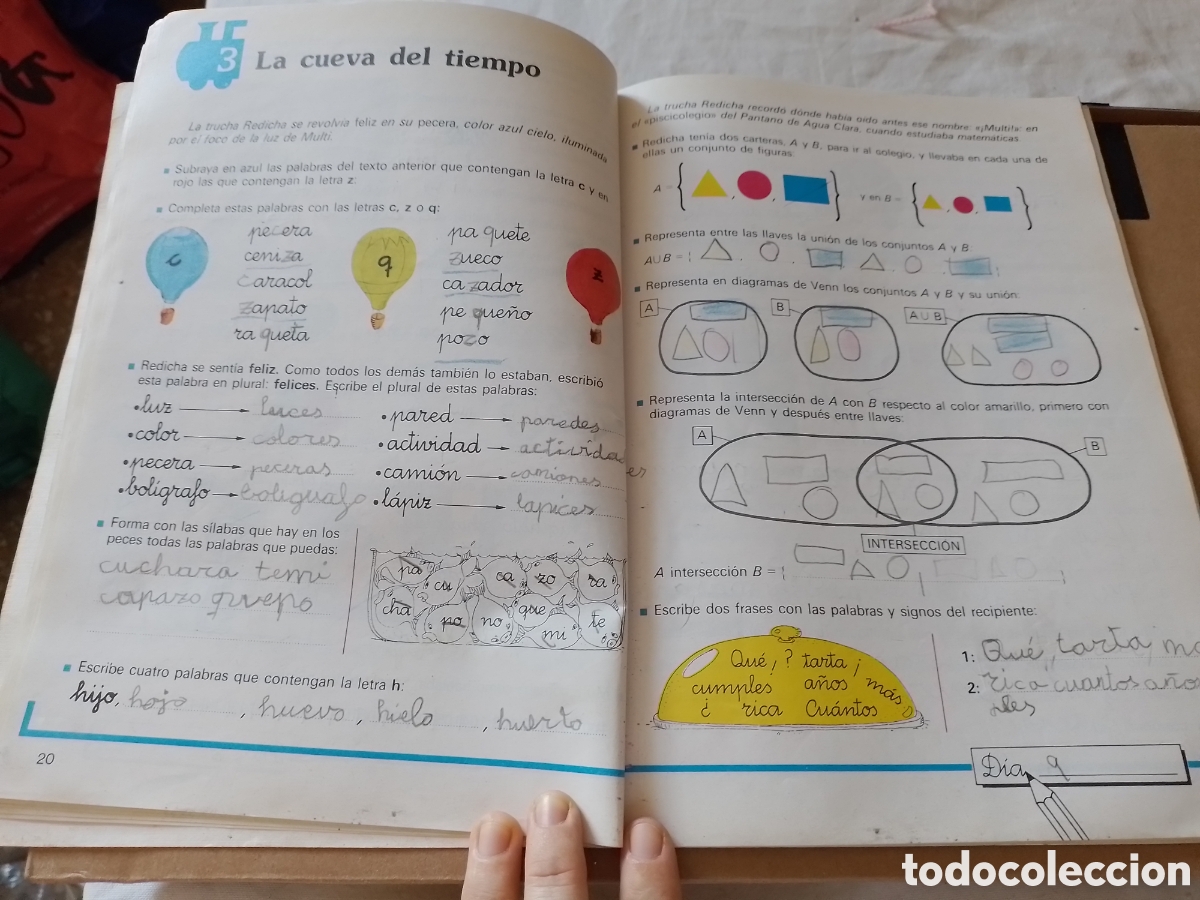 3 La cueva del tiempo
La trucha Redicha se revolvía feliz en su pecera, color azul cielo, iluminada
por el foco de la luz de Multi.
Subraya en azul las palabras del texto anterior que contengan la letra c y en
rojo las que contengan la letra z:
Completa estas palabras con las letras c, z o q:
c
pecera
ceniza
caracol
zapato
raqueta
q
paquete
zueco
cazador
pequeño
pozo
z
Redicha se sentía feliz. Como todos los demás también lo estaban, escribió
esta palabra en plural: felices. Escribe el plural de estas palabras:
luz luces
color colores
pecera peceras
bolígrafo
pared paredes
actividad actividades
camión camiones
lápiz lapices
Forma con las sílabas que hay en los
peces todas las palabras que puedas:
cuchara temi
capazo
pa cu ca zo ra
cha po no que mi te
Escribe cuatro palabras que contengan la letra h:
hijo, hojo, huevo, hielo, huerto
20
La trucha Redicha recordó dónde había oído antes ese nombre: «¡Multi!»: en
el «piscicolegio» del Pantano de Agua Clara, cuando estudiaba matemáticas.
Redicha tenía dos carteras, A y B, para ir al colegio, y llevaba en cada una de
ellas un conjunto de figuras:
A = { , , } y en B = { , , }
Representa entre las llaves la unión de los conjuntos A y B:
A∪B = {
Representa en diagramas de Venn los conjuntos A y B y su unión:
A B A∪B
Representa la intersección de A con B respecto al color amarillo, primero con
diagramas de Venn y después entre llaves:
A B
INTERSECCIÓN
A intersección B = {
Escribe dos frases con las palabras y signos del recipiente:
Qué, ? tarta ¡
cumples años más
¿ rica Cuántos
1: Qué, tarta, m
2: rica cuantos años
ples
Día 9
todocoleccion